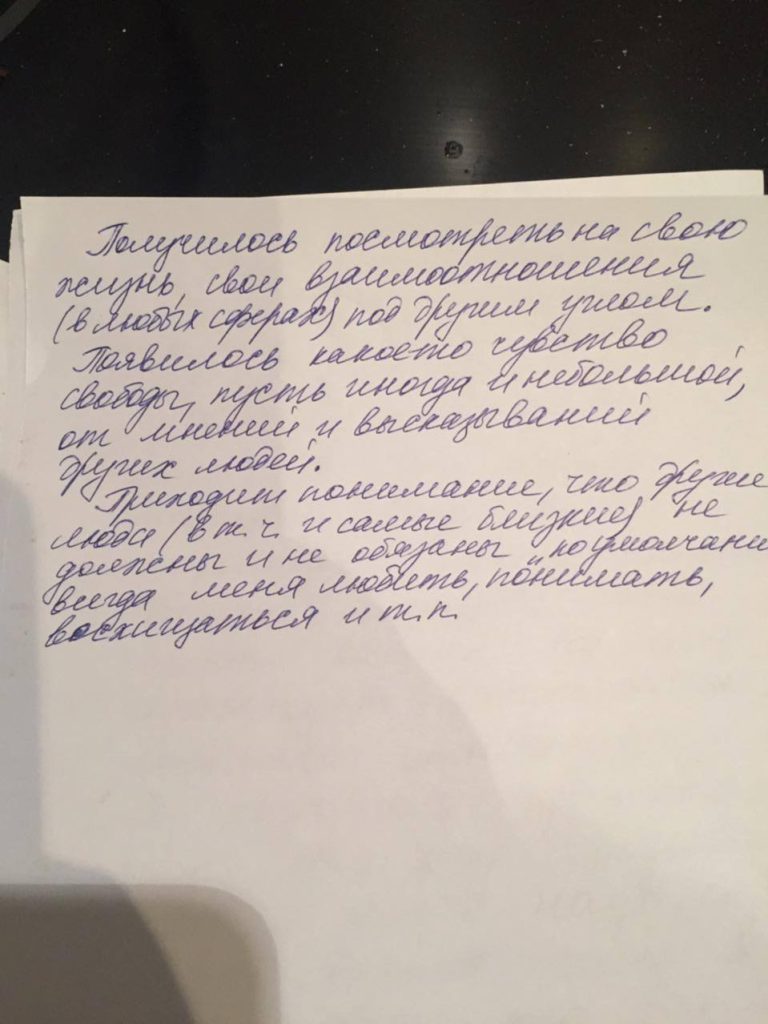 Получилось посмотреть на свою
жизнь, свои взаимоотношения
(в любых сферах) под другим углом.
Появилось какое-то чувство
свободы, пусть иногда и небольшой,
от мнений и высказываний
других людей.
Приходит понимание, что други
люди (в т.ч. и самые близкие) не
должны и не обязаны "по умолчани
всегда меня любить, понимать,
восхищаться и т.п.